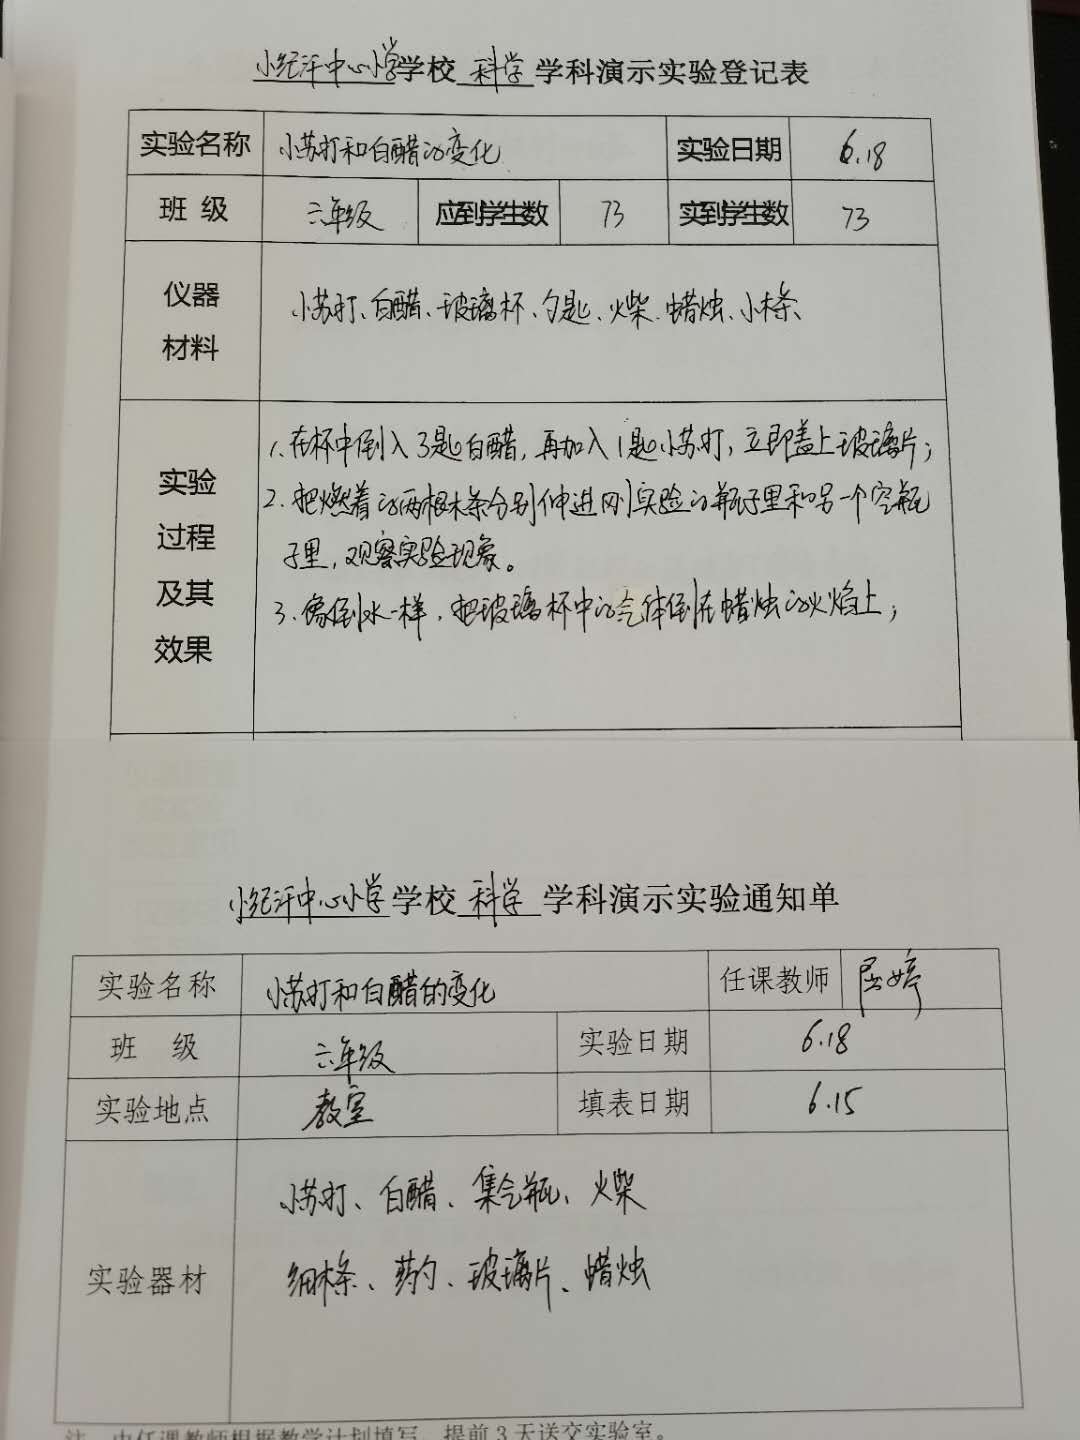 小纪汗中心小学学校 科学 学科演示实验登记表
实验名称 小苏打和白醋的变化 实验日期 6.18
班 级 六年级 应到学生数 73 实到学生数 73
仪器
材料
小苏打、白醋、玻璃杯、勺匙、火柴、蜡烛、小木条、
实验
过程
及其
效果
1.在杯中倒入3匙白醋，再加入1匙小苏打，立即盖上玻璃片；
2.把燃着的两根木条分别伸进刚实验的瓶子里和另一个空瓶
子里，观察实验现象。
3.像倒水一样，把玻璃杯中的气体倒在蜡烛的火焰上；
小纪汗中心小学学校 科学 学科演示实验通知单
实验名称 小苏打和白醋的变化 任课教师 屈婷
班 级 六年级 实验日期 6.18
实验地点 教室 填表日期 6.15
实验器材
小苏打、白醋、集气瓶、火柴
细木条、药勺、玻璃片、蜡烛
注 由任课教师根据教学计划填写，提前3天送交实验室。